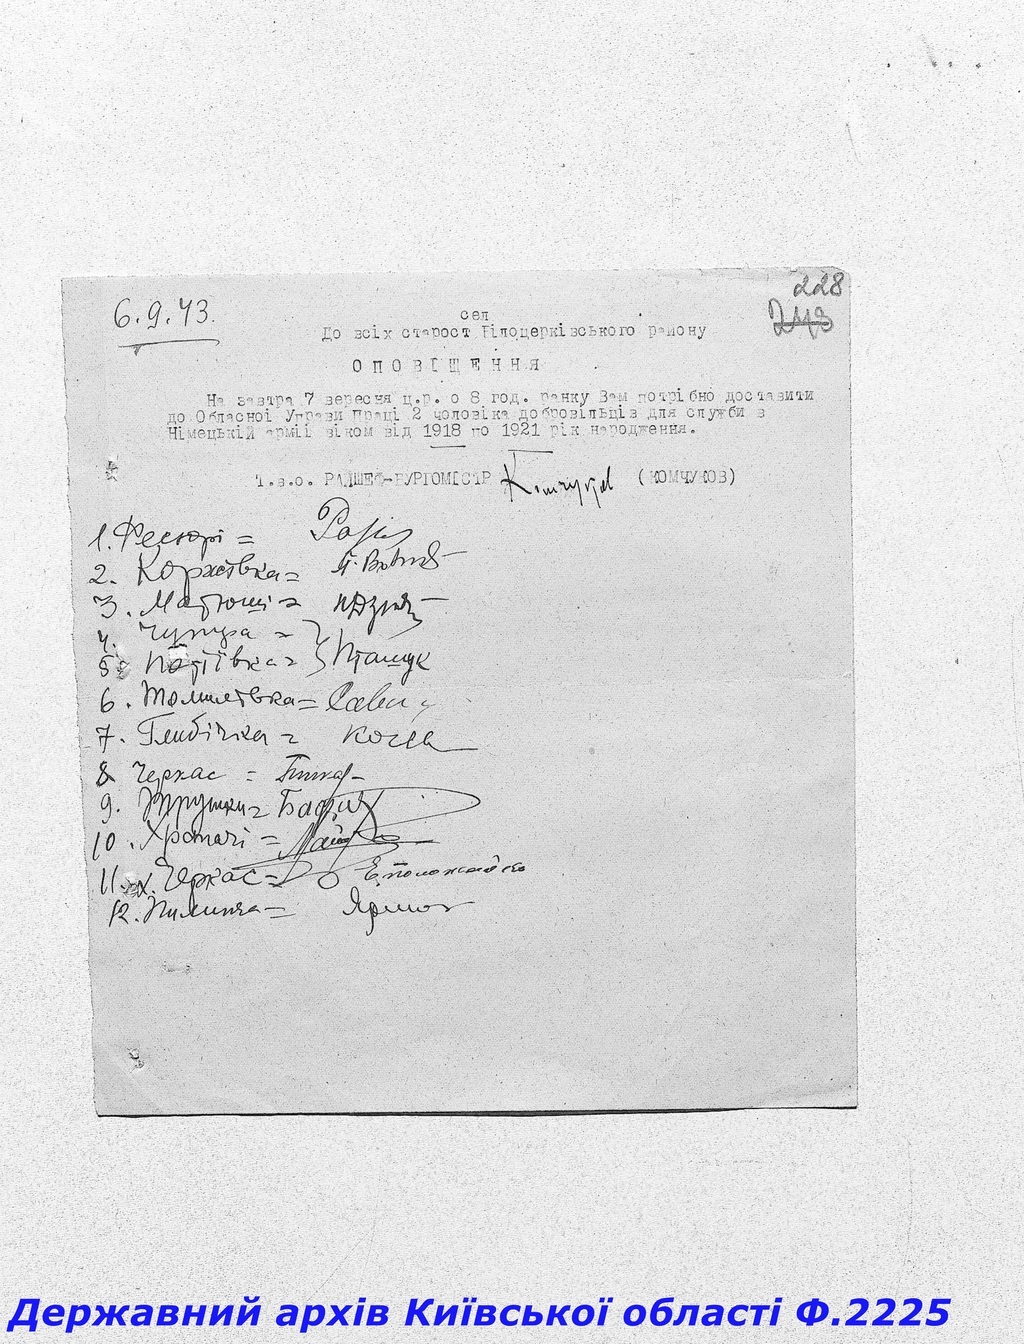 228
6.9.43.
сел
До всіх старост Білоцерківського району
ОПОВІЩЕННЯ
На завтра 7 вересня ц.р. о 8 год. ранку Вам потрібно доставити
до Обласної Управи Праці 2 чоловіка добровільців для служби в
Німецькій армії віком від 1918 по 1921 рік народження.
Т.в.о. РАЙШЕФ-БУРГОМІСТР (КОМЧУКОВ)
1. Фесюрі =
2. Коржівка =
3. Матюші =
4. Чупира =
5. Потіївка = Пташук
6. Томилівка =
7. Глибічка =
8 Черкас =
9. Трушки =
10. Храпачі =
11. х. Черкас =
12. Пилипча =
Державний архів Київської області Ф.2225